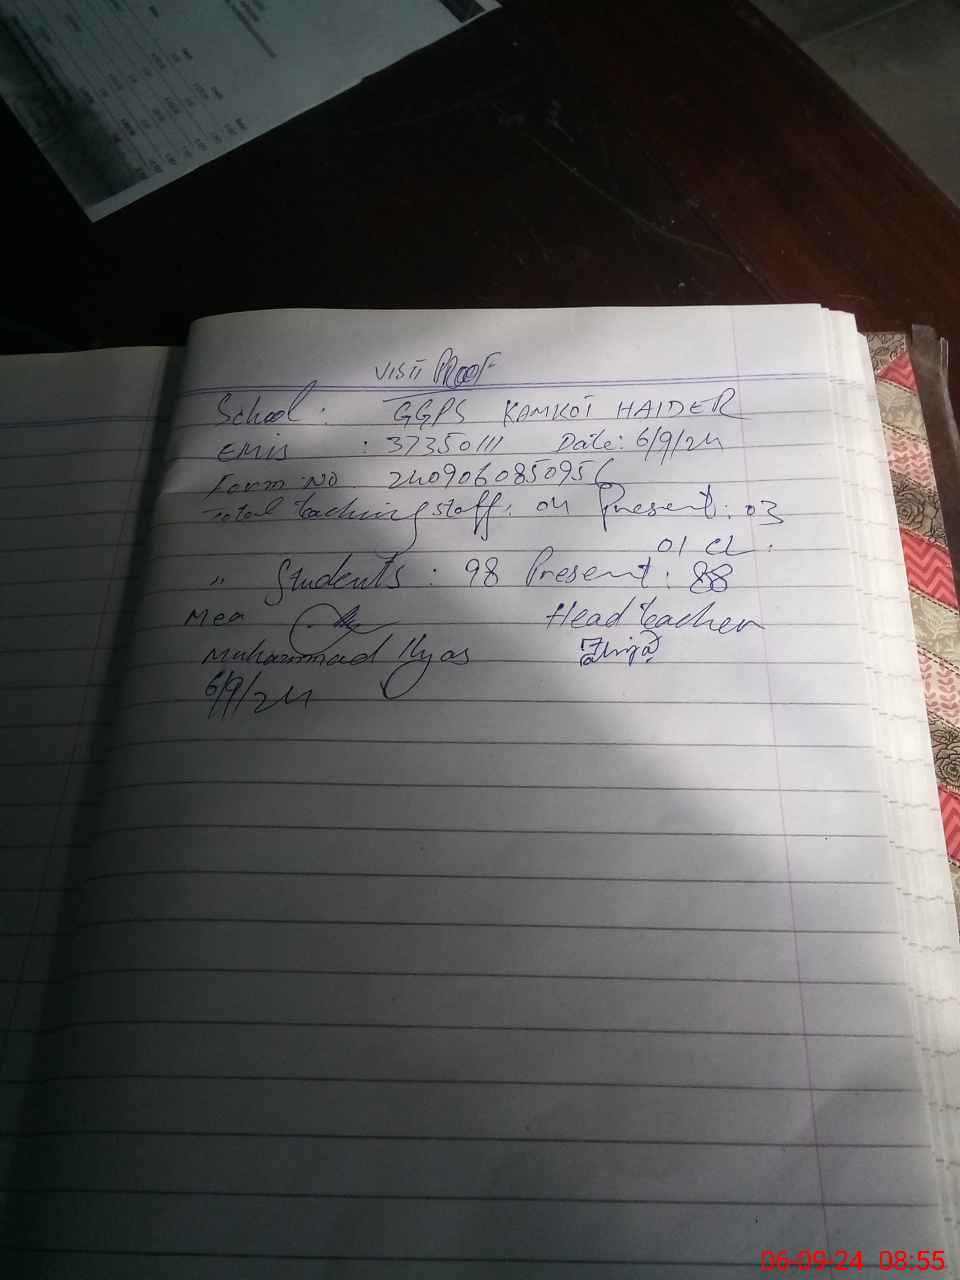 VISIT PROOF
School : GGPS KAMKOT HAIDER
EMIS : 37350111 Date: 6/9/24
Form No. 2409060850956
Total teaching staff: 04 Present: 03
01 CL.
" Students : 98 Present : 88
Mea Head teacher
Muhammad Ilyas
6/9/24
06-09-24 08:55